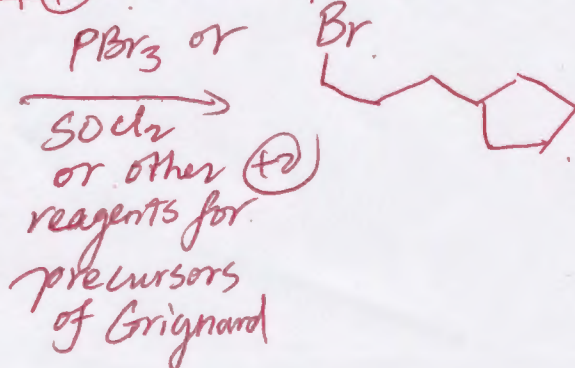 PBr3 or
Br
SOCl2
or other +2
reagents for
precursors
of Grignard